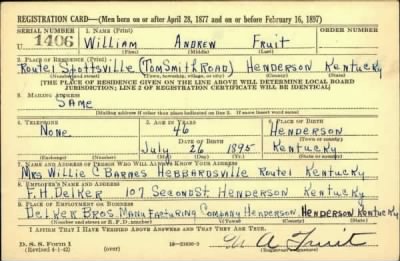 REGISTRATION CARD—(Men born on or after April 28, 1877 and on or before February 16, 1897)
SERIAL NUMBER 1. NAME (Print) ORDER NUMBER
U 1406 William Andrew Fruit
(First) (Middle) (Last)
2. PLACE OF RESIDENCE (Print)
Route 1 Spottsville (Tom Smith Road) Henderson Kentucky
(Number and street) (Town, township, village, or city) (County) (State)
[THE PLACE OF RESIDENCE GIVEN ON THE LINE ABOVE WILL DETERMINE LOCAL BOARD
JURISDICTION; LINE 2 OF REGISTRATION CERTIFICATE WILL BE IDENTICAL]
3. MAILING ADDRESS
SAME
[Mailing address if other than place indicated on line 2. If same insert word same]
4. TELEPHONE 5. AGE IN YEARS 6. PLACE OF BIRTH
None 46 Henderson
DATE OF BIRTH (Town or county)
July 26 1895 Kentucky
(Exchange) (Number) (Mo.) (Day) (Yr.) (State or country)
7. NAME AND ADDRESS OF PERSON WHO WILL ALWAYS KNOW YOUR ADDRESS
Mrs Willie C Barnes Hebbardsville Route 1 Kentucky
8. EMPLOYER'S NAME AND ADDRESS
F. H. Delker 107 Second St Henderson Kentucky
9. PLACE OF EMPLOYMENT OR BUSINESS
Delker Bros. Manufacturing Company Henderson Henderson Kentucky
(Number and street or R. F. D. number) (Town) (County) (State)
I AFFIRM THAT I HAVE VERIFIED ABOVE ANSWERS AND THAT THEY ARE TRUE.
D. S. S. Form 1
(Revised 4-1-42) (over) W A Fruit